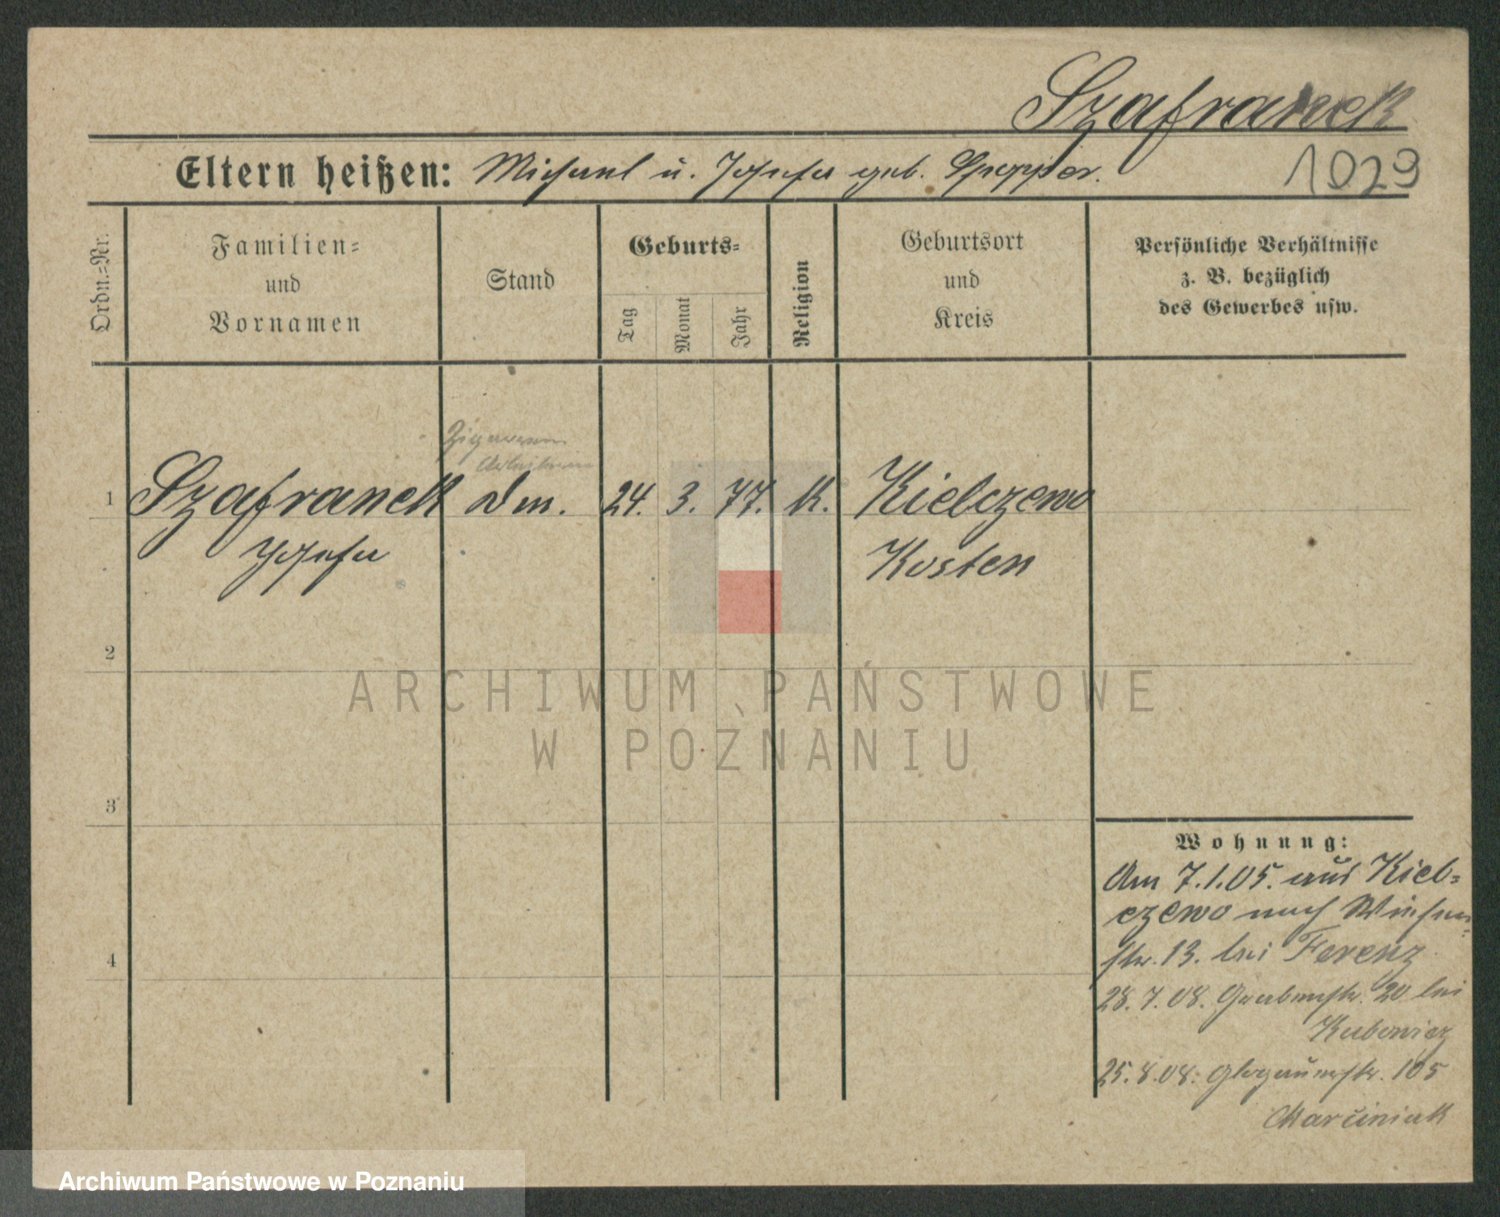 Szafranek
1029
Eltern heißen: Michael u. Josefa geb.
Ordn.=Nr.
Familien=
und
Vornamen
Stand
Geburts=
Tag
Monat
Jahr
Religion
Geburtsort
und
Kreis
Persönliche Verhältnisse
z. B. bezüglich
des Gewerbes usw.
Zigarren
Arbeiterin
1 Szafranek Dm. 24. 3. 77. K. Kielczewo
Josefa Kosten
2
3
4
Wohnung:
Am 7.1.05. aus Kiel=
czewo nach Wiesen=
str. 13. bei Ferenz
28.7.08. Grabenstr. 20 bei
Kubowicz
25.8.08. Glogauerstr. 105
Marciniak
ARCHIWUM PAŃSTWOWE
W POZNANIU
Archiwum Państwowe w Poznaniu